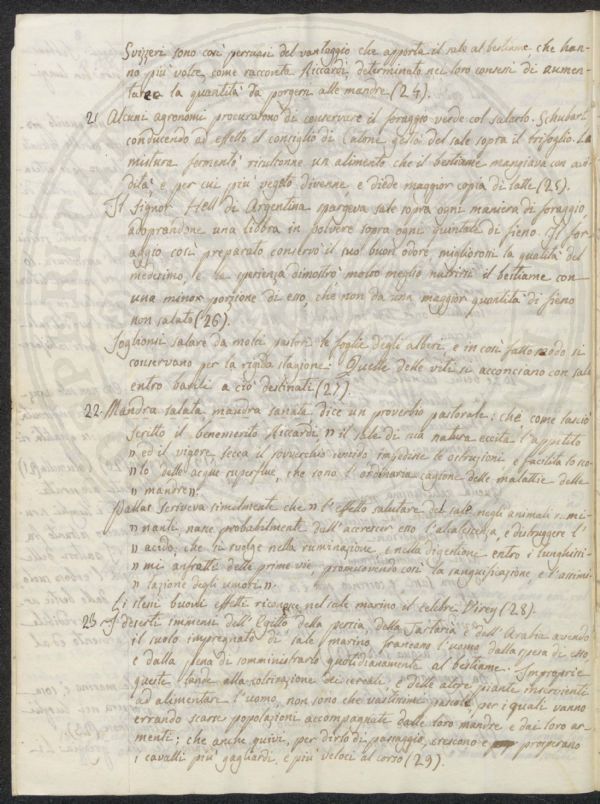 Svizzeri sono così persuasi del vantaggio che apporta il sale al bestiame, che han-
no più volte come racconta Riccardi, determinato nei loro consessi di aumen-
tare la quantità da porgere alle mandre (24).
21 Alcuni agronomi procurarono di conservare il foraggio verde col salarlo. Schubart
conducendo ad effetto il consiglio di Catone gettò del sale sopra il trifoglio. La
mistura fermentò risultonne un alimento che il bestiame mangiava con avi
dità, e per cui più vegeto divenne e diede maggior copia di latte (25).
Il Signor Hell di Argentina spargeva sale sopra ogni maniera di foraggio
adoprandone una libbra in polvere sopra ogni quintale di fieno. Il for
aggio così preparato conservò il suo buon odore, migliorossi la qualità del
medesimo e la sperienza dimostrò molto meglio nutrirsi il bestiame con
una minor porzione di esso, che non da una maggior quantità di fieno
non salato (26).
Soglionsi salare da molti pastori le foglie degli alberi, e in così fatto modo si
conservano per la rigida stagione: Quelle delle viti si acconciano con sale
entro barili a ciò destinati (27).
22. Mandra salata mandra sanata dice un proverbio pastorale: chè come lasciò
scritto il benemerito Riccardi " il sale di sua natura eccita l'appetito
" ed il vigore, secca il soverchio umido impedisce le ostruzioni e facilita lo sco-
" lo delle acque superflue, che sono l'ordinaria cagione delle malattie delle
" mandre ".
Pallas scriveva similmente che " l'effetto salutare del sale negli animali rumi-
" nanti, nasce probabilmente dall'accrescer esso l'alcalescenza, e distruggere l'
" acido, che si svolge nella ruminazione, e nella digestione entro i lunghissi-
" mi anfratti delle prime vie, promovendo così la sanguificazione e l'assimi-
" lazione degli umori ".
Gli stessi buoni effetti riconosce nel sale marino il celebre Virey (28).
23 I deserti immensi dell'Egitto della Persia, della Tartaria e dell'Arabia avendo
il suolo impregnato di sale marino francano l'uomo dalla spesa di esso
e dalla pena di somministrarlo quotidianamente al bestiame. Improprie
queste lande alla coltivazione dei cereali, e delle altre piante inservienti
ad alimentare l'uomo, non sono che vastissimi pascoli, per i quali vanno
errando scarse popolazioni accompagnate dalle loro mandre e dai loro ar
menti; che anche quivi, per dirlo di passaggio, crescono e prosperano
i cavalli più gagliardi, e più veloci al corso (29).